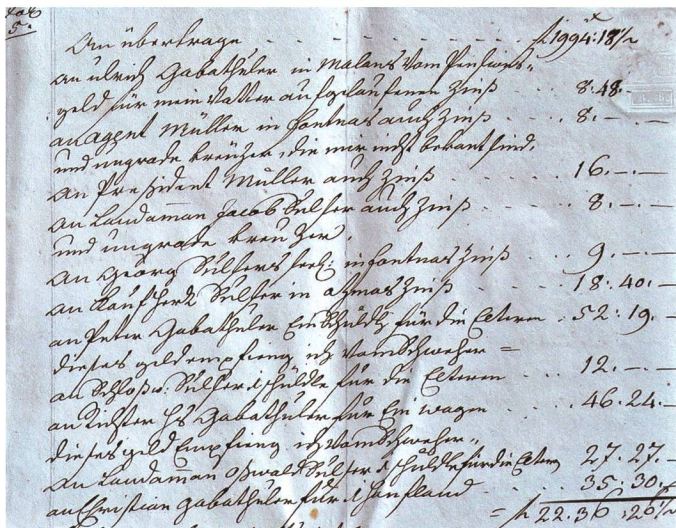 fol
5.
An übertrage - - - - - - - - - f 1994: 18½
an ulrich Gabathuler in Malans vom Pensions-
geld für mein Vatter aufgelaufenen Zinß . . 8.48.
an agent Müller in fontnas auch Zinß . . . 8. — . —
und ungrade kreüzer, die mir nicht bekant sind.
An President Müller auch Zinß . . . . 16. — . —
An Landaman Jacob Sulser auch Zinß . . . . 8. — . —
und ungrade kreuzer.
an Georg Sulsers seel: in fontnas Zinß . . . 9. — . —
an Kaufherr Sulser in azmas Zinß . . . . 18. 40. —
an Peter Gabathuler Ein Schuldt für die Elteren . 52: 19. —
dieses geld empfieng ich vom Schweher =
an Schlosw: Sulser 1 schuldt für die Elteren . . . 12. — . —
an Richter Hs Gabathuler für Ein wagen . . . 46. 24. —
dieses geld Empfieng ich vom Schweher =
An Landaman Oswald Sulser 1 schuldt für die Elteren 27. 27. —
an Christian Gabathuler für 1 Hanfland . . . 35. 30. —
= f 2236. 26½